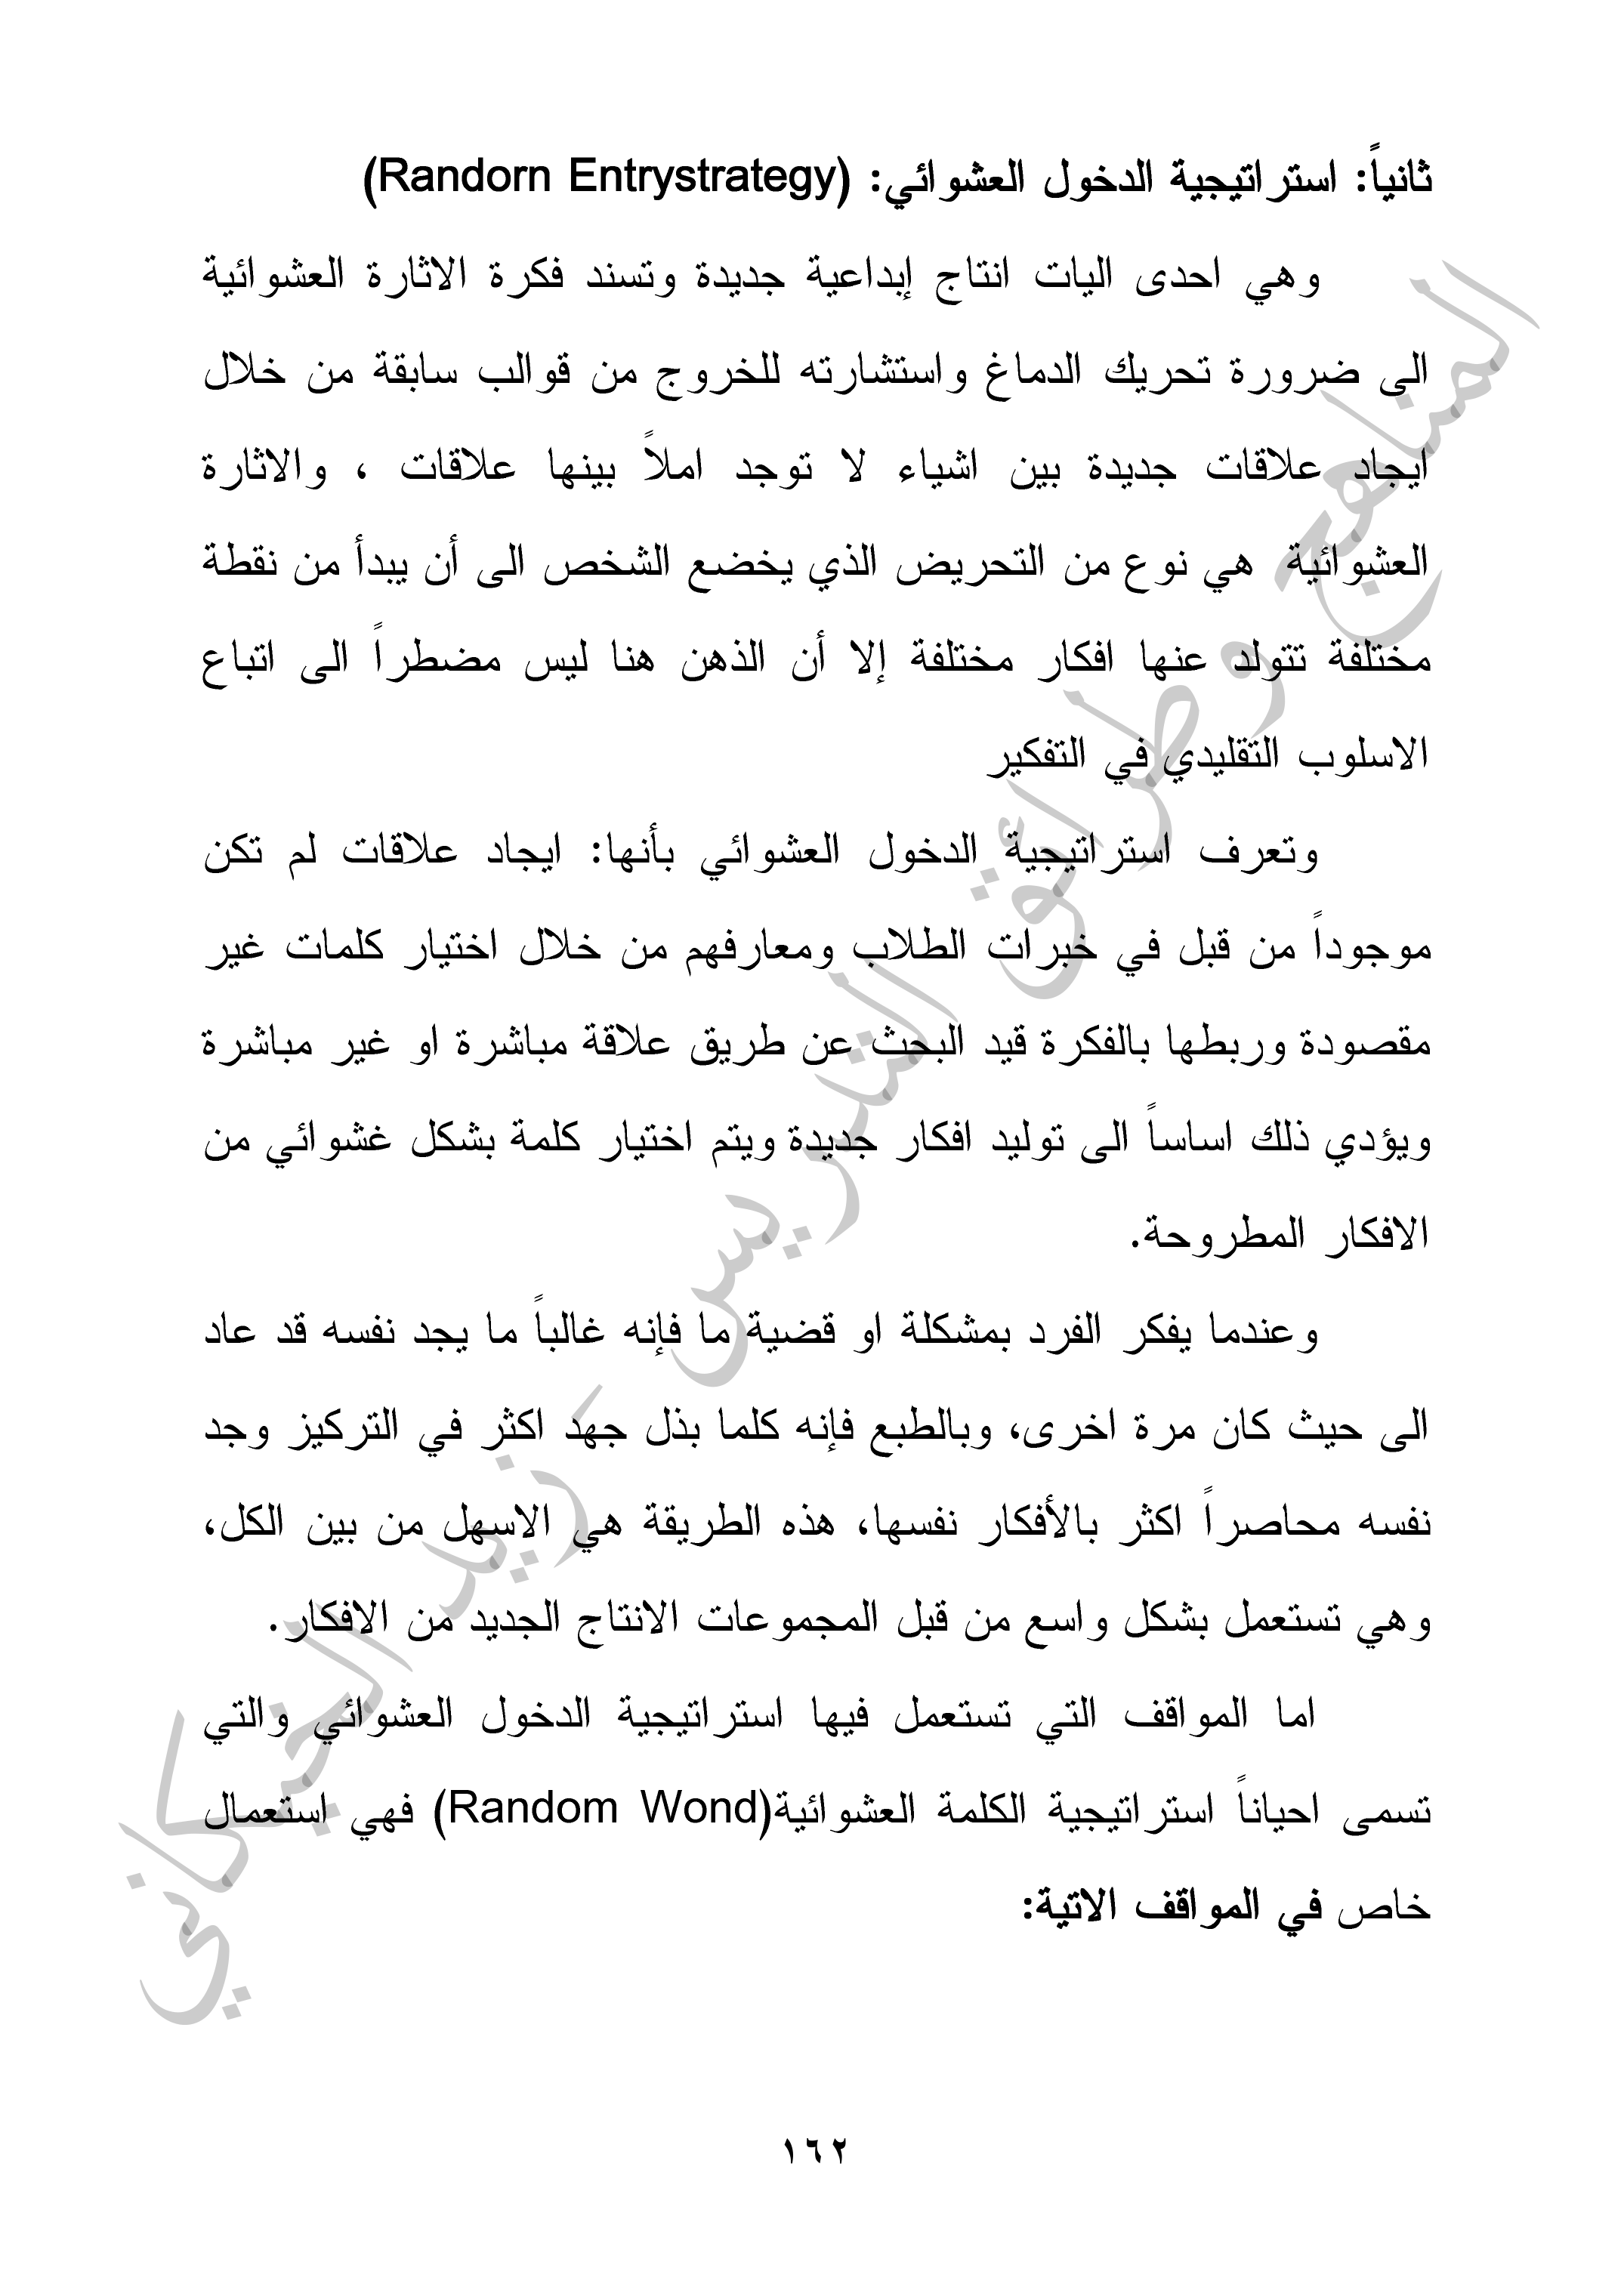 ثانياً: استراتيجية الدخول العشوائي: (Randorn Entrystrategy)
وهي احدى اليات انتاج إبداعية جديدة وتسند فكرة الاثارة العشوائية
الى ضرورة تحريك الدماغ واستشارته للخروج من قوالب سابقة من خلال
ايجاد علاقات جديدة بين اشياء لا توجد املاً بينها علاقات ، والاثارة
العشوائية هي نوع من التحريض الذي يخضع الشخص الى أن يبدأ من نقطة
مختلفة تتولد عنها افكار مختلفة إلا أن الذهن هنا ليس مضطراً الى اتباع
الاسلوب التقليدي في التفكير
وتعرف استراتيجية الدخول العشوائي بأنها: ايجاد علاقات لم تكن
موجوداً من قبل في خبرات الطلاب ومعارفهم من خلال اختيار كلمات غير
مقصودة وربطها بالفكرة قيد البحث عن طريق علاقة مباشرة او غير مباشرة
ويؤدي ذلك اساساً الى توليد افكار جديدة ويتم اختيار كلمة بشكل غشوائي من
الافكار المطروحة.
وعندما يفكر الفرد بمشكلة او قضية ما فإنه غالباً ما يجد نفسه قد عاد
الى حيث كان مرة اخرى، وبالطبع فإنه كلما بذل جهد اكثر في التركيز وجد
نفسه محاصراً اكثر بالأفكار نفسها، هذه الطريقة هي الاسهل من بين الكل،
وهي تستعمل بشكل واسع من قبل المجموعات الانتاج الجديد من الافكار.
اما المواقف التي تستعمل فيها استراتيجية الدخول العشوائي والتي
تسمى احياناً استراتيجية الكلمة العشوائية(Random Wond) فهي استعمال
خاص في المواقف الاتية:
المناهج وطرائق التدريس - زيد الخيكاني
١٦٢